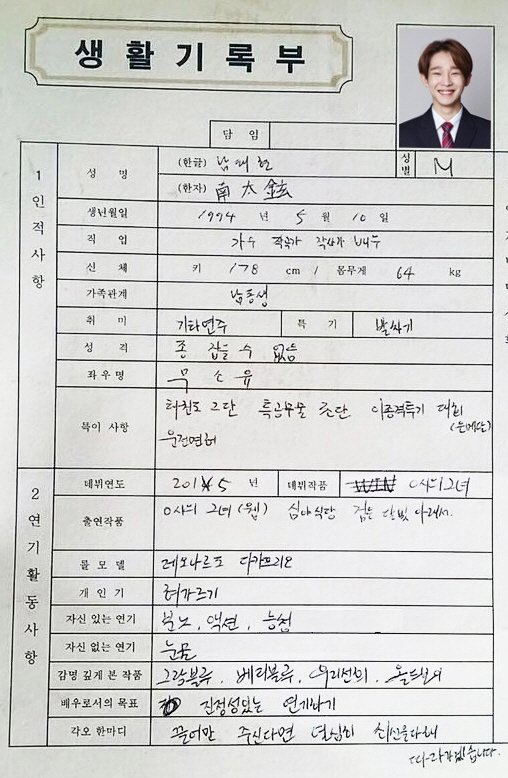 생활기록부
담 임
1 인적사항
성 명
(한글) 남태현
(한자) 南太鉉
성별 M
생년월일 1994 년 5 월 10 일
직 업 가수 작곡가 작사가 배우
신 체 키 178 cm / 몸무게 64 kg
가족관계 남동생
취 미 기타연주 특 기 발차기
성 격 종 잡을 수 없음
좌우명 무소유
특이 사항 태권도 2단 특공무술 초단 이종격투기 대회
(은메달)
운전면허
2 연기활동사항
데뷔연도 2015 년 데뷔작품 WIN 0시의 그녀
출연작품 0시의 그녀 (웹) 심야식당 검은 달빛 아래서.
롤 모델 레오나르도 디카프리오
개 인 기 혀가르기
자신 있는 연기 분노, 액션, 능청
자신 없는 연기 눈물
감명 깊게 본 작품 그랑블루, 베티블루, 우리선희, 올드보이
배우로서의 목표 진정성있는 연기하기
각오 한마디 끌어만 주신다면 열심히 최선을다해
따라가겠습니다.